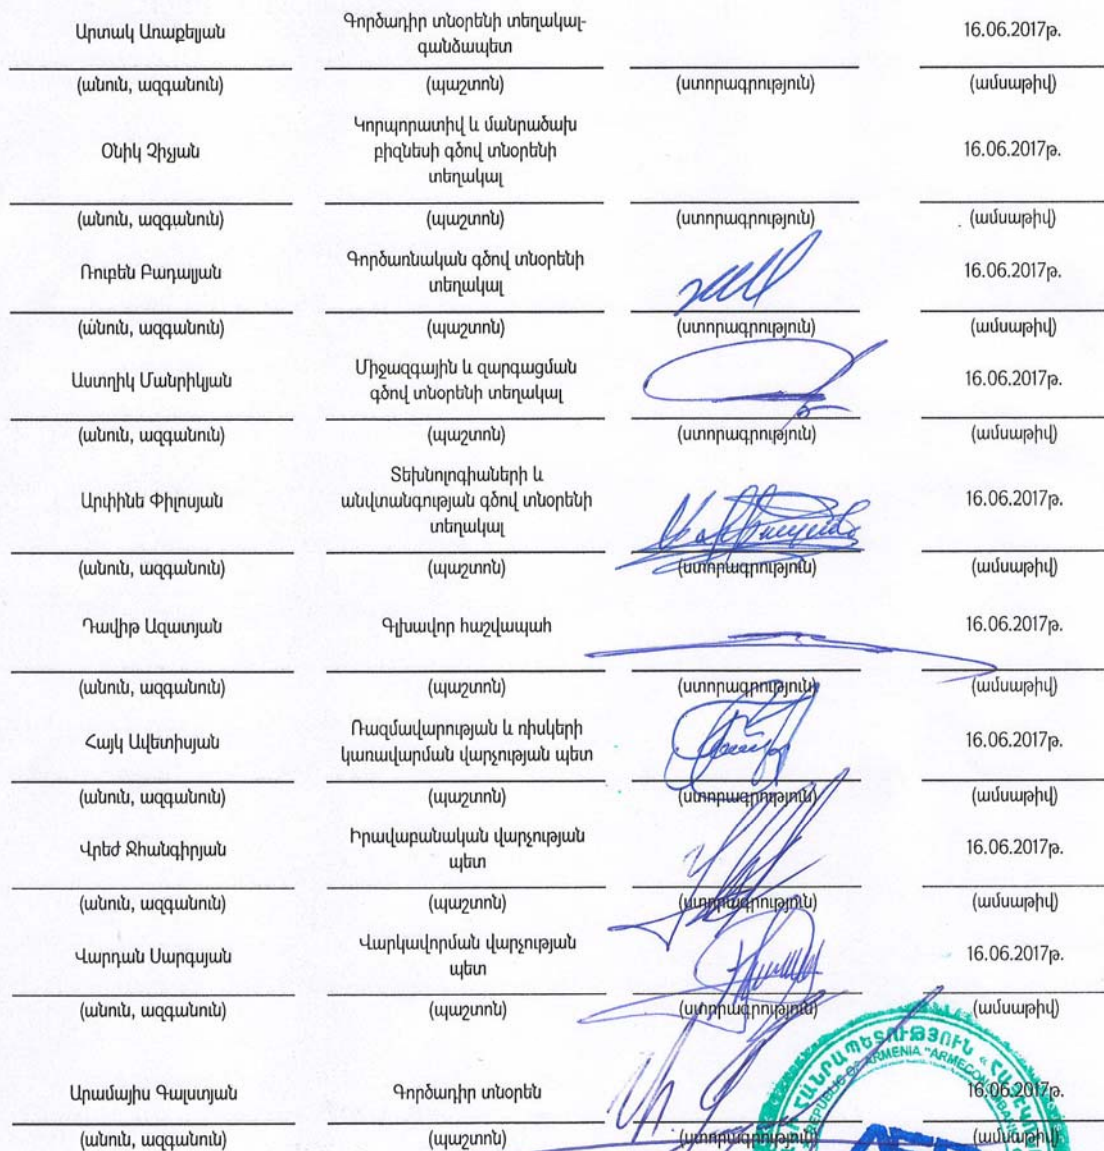 Արտակ Առաքելյան
Գործադիր տնօրենի տեղակալ-
գանձապետ
16.06.2017թ.
(անուն, ազգանուն) (պաշտոն) (ստորագրություն) (ամսաթիվ)
Օնիկ Չիչյան
Կորպորատիվ և մանրածախ
բիզնեսի գծով տնօրենի
տեղակալ
16.06.2017թ.
(անուն, ազգանուն) (պաշտոն) (ստորագրություն) (ամսաթիվ)
Ռուբեն Բադալյան
Գործառնական գծով տնօրենի
տեղակալ
16.06.2017թ.
(անուն, ազգանուն) (պաշտոն) (ստորագրություն) (ամսաթիվ)
Աստղիկ Մանրիկյան
Միջազգային և զարգացման
գծով տնօրենի տեղակալ
16.06.2017թ.
(անուն, ազգանուն) (պաշտոն) (ստորագրություն) (ամսաթիվ)
Արփինե Փիլոսյան
Տեխնոլոգիաների և
անվտանգության գծով տնօրենի
տեղակալ
16.06.2017թ.
(անուն, ազգանուն) (պաշտոն) (ստորագրություն) (ամսաթիվ)
Դավիթ Ազատյան
Գլխավոր հաշվապահ
16.06.2017թ.
(անուն, ազգանուն) (պաշտոն) (ստորագրություն) (ամսաթիվ)
Հայկ Ավետիսյան
Ռազմավարության և ռիսկերի
կառավարման վարչության պետ
16.06.2017թ.
(անուն, ազգանուն) (պաշտոն) (ստորագրություն) (ամսաթիվ)
Վրեժ Ջհանգիրյան
Իրավաբանական վարչության
պետ
16.06.2017թ.
(անուն, ազգանուն) (պաշտոն) (ստորագրություն) (ամսաթիվ)
Վարդան Սարգսյան
Վարկավորման վարչության
պետ
16.06.2017թ.
(անուն, ազգանուն) (պաշտոն) (ստորագրություն) (ամսաթիվ)
Արամայիս Գալստյան
Գործադիր տնօրեն
16.06.2017թ.
(անուն, ազգանուն) (պաշտոն) (ստորագրություն) (ամսաթիվ)
REPUBLIC OF ARMENIA